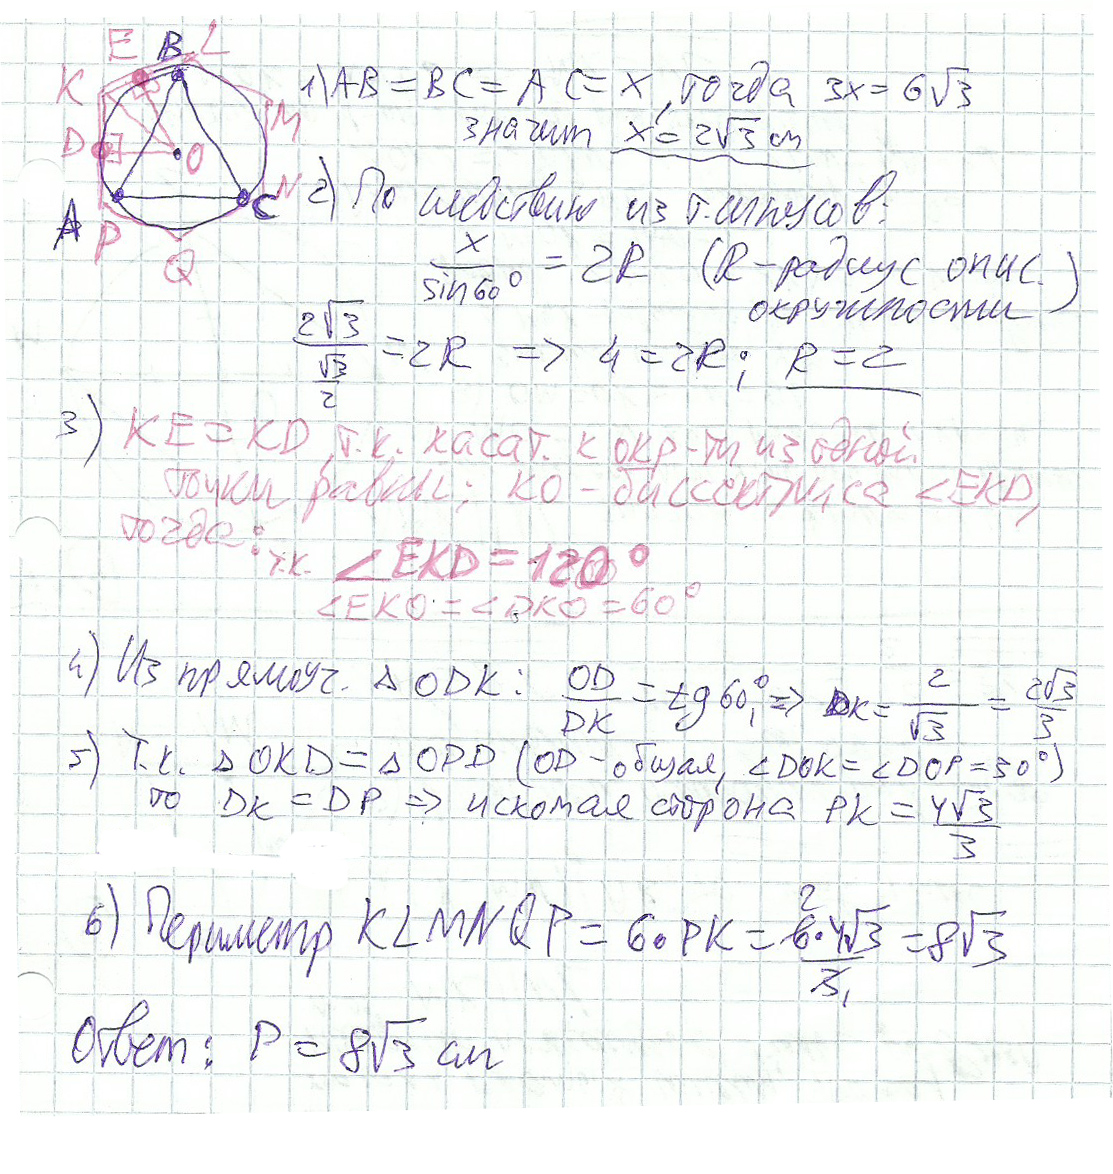 E B L
K
M
D
O
N
A
C
P
Q
1) AB = BC = AC = X, тогда 3x = 6√3
значит x = 2√3 см
2) По следствию из т. синусов:
x/sin60° = 2R (R - радиус опис. окружности)
2√3/(√3/2) = 2R => 4 = 2R; R = 2
3) KE = KD, т.к. касат. к окр-ти из одной
точки равны; KO - биссектриса ∠EKD,
тогда:
т.к. ∠EKD = 120°
∠EKO = ∠DKO = 60°
4) Из прямоуг. △ODK: OD/DK = tg 60°, => DK = 2/√3 = 2√3/3
5) Т.к. △OKD = △OPD (OD - общая, ∠DOK = ∠DOP = 30°)
то DK = DP => искомая сторона PK = 4√3/3
6) Периметр KLMNQP = 6·PK = 6·4√3/3 = 8√3
2
1
Ответ: P = 8√3 см